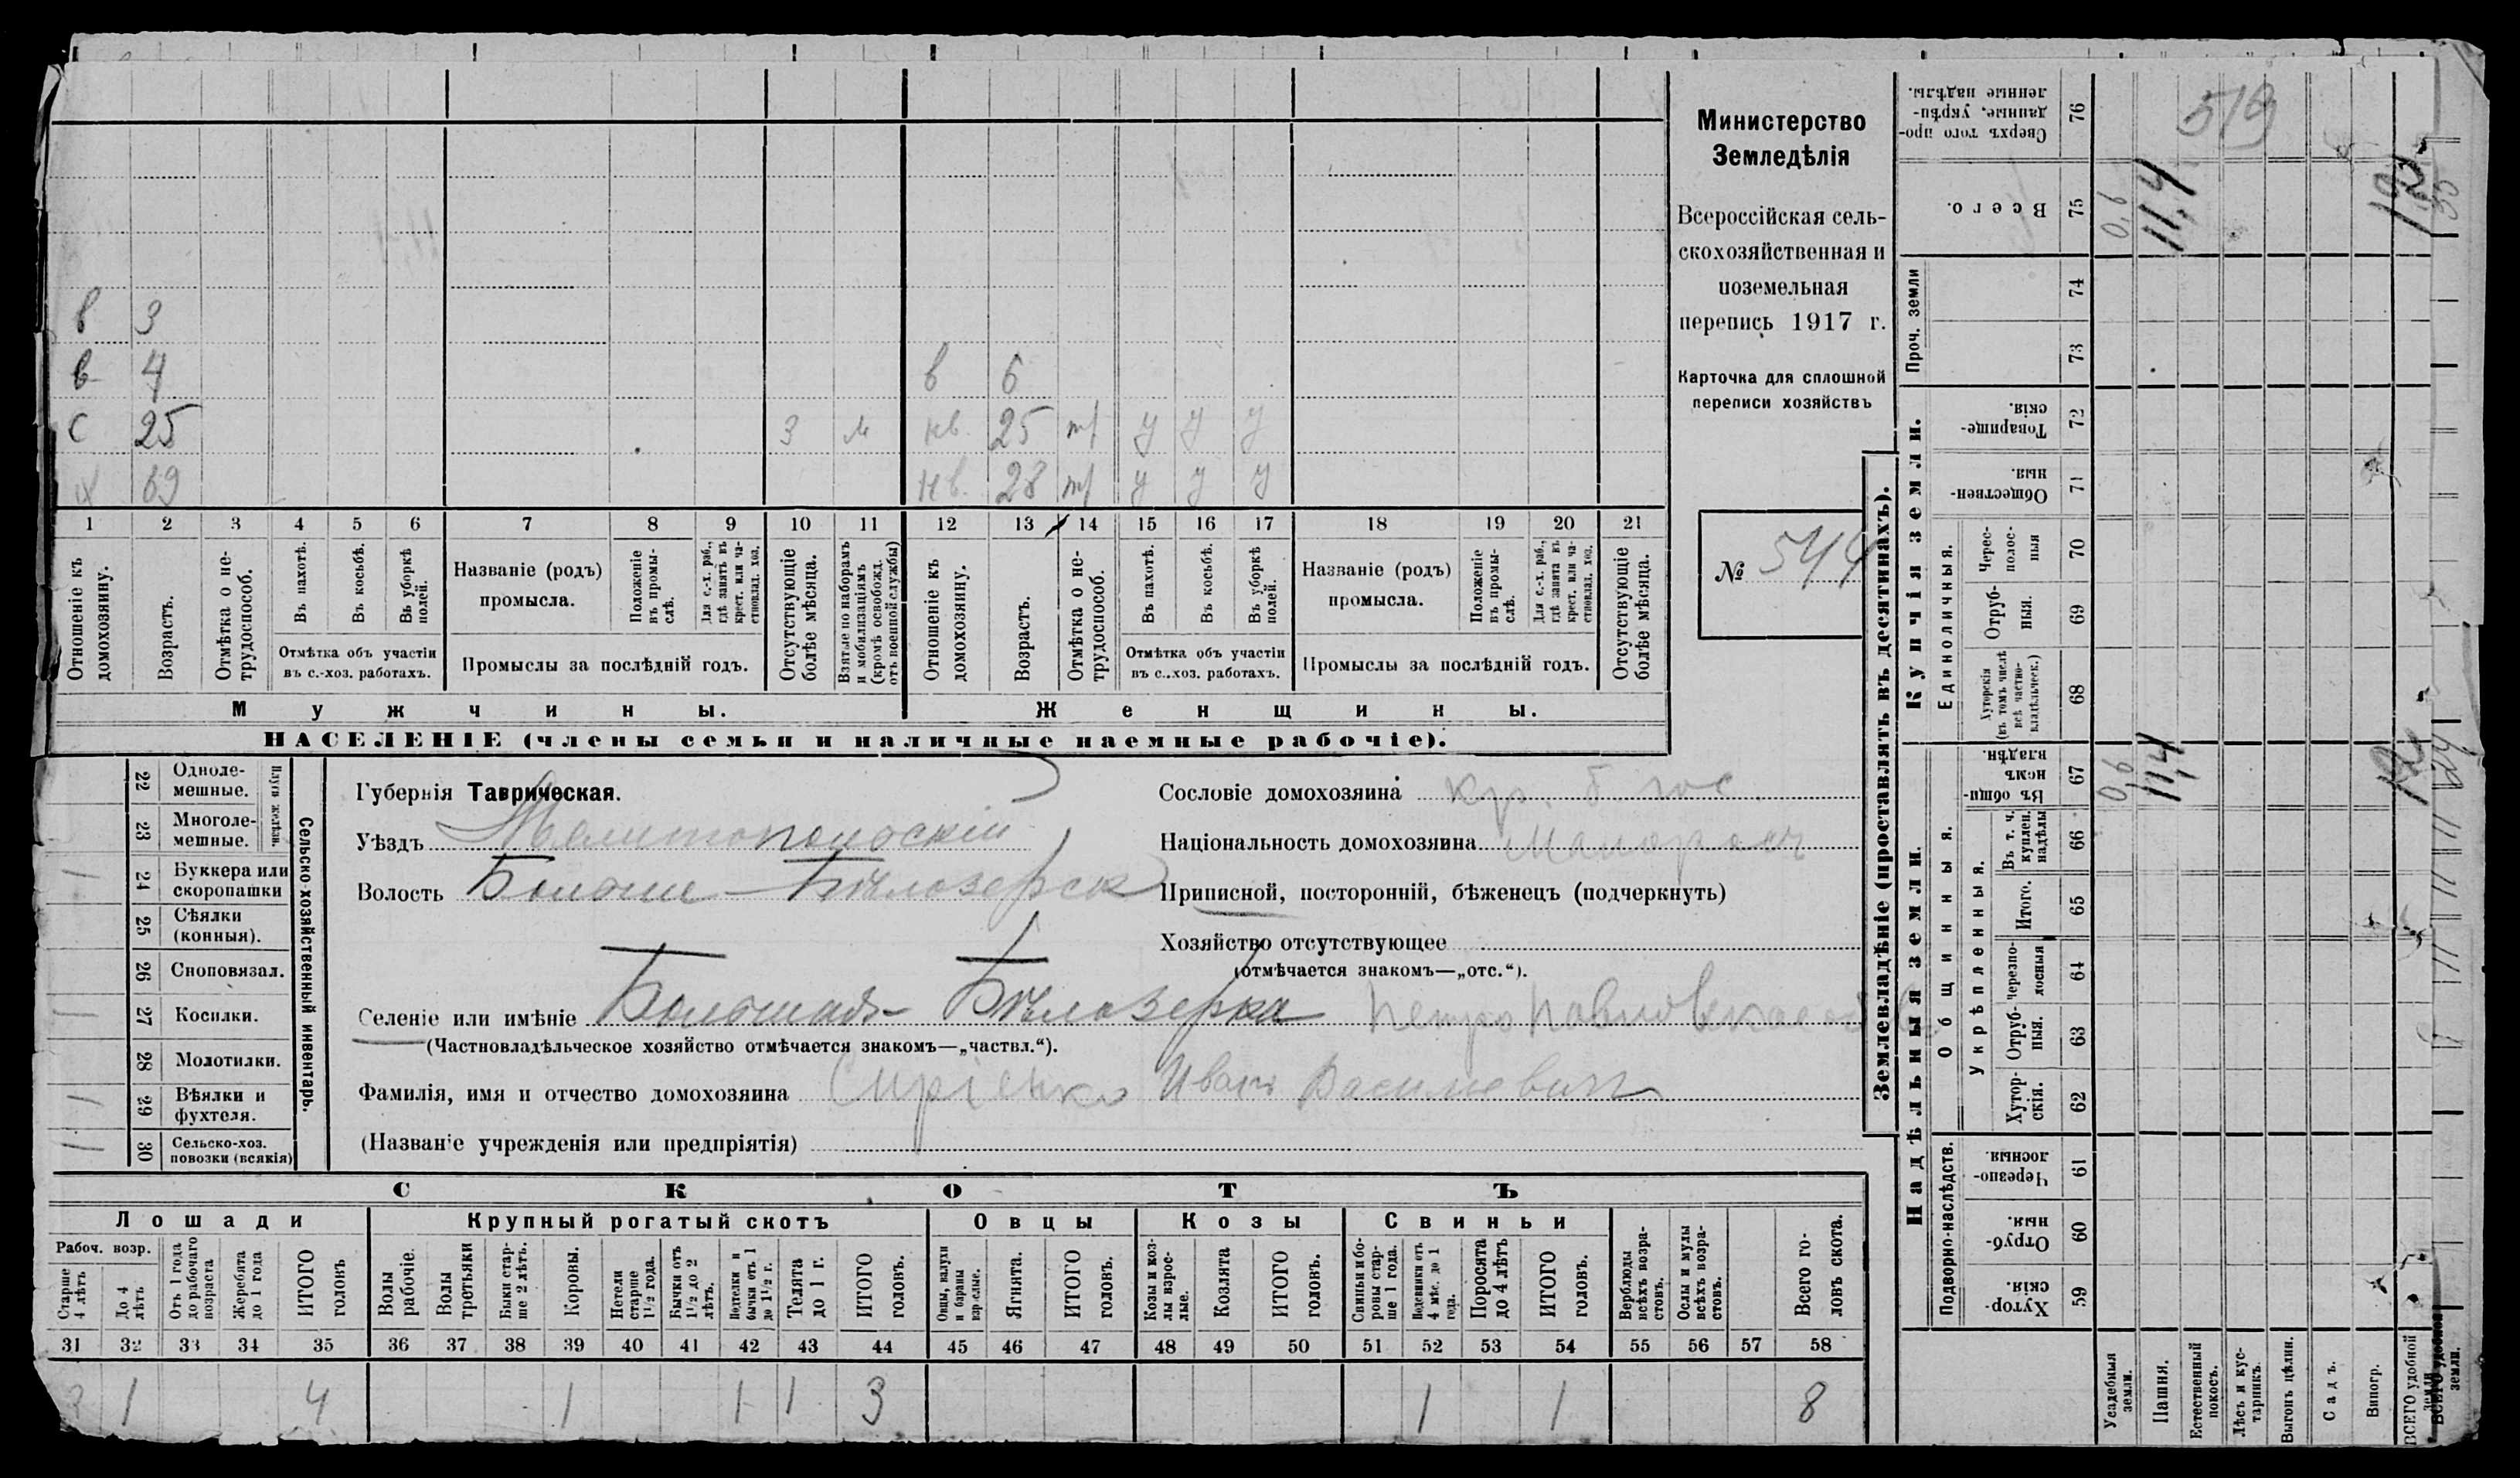 в 3
в 4 в 6
с 25 3 м нв. 25 тр у у у
х 69 нв. 28 тр у у у
1 2 3 4 5 6 7 8 9 10 11 12 13 14 15 16 17 18 19 20 21
Отношеніе къ домохозяину.
Возрастъ.
Отмѣтка о не-трудоспособ.
Въ пахотѣ.
Въ косьбѣ.
Въ уборкѣ полей.
Отмѣтка объ участіи
въ с.-хоз. работахъ.
Названіе (родъ)
промысла.
Положеніе въ промы-слѣ.
Для с.-х. раб., гдѣ занятъ въ крест. или ча-стновлад. хоз.
Промыслы за послѣдній годъ.
Отсутствующіе болѣе мѣсяца.
Взятые по наборамъ и мобилизаціямъ (кромѣ освобожд. отъ военной службы)
Отношеніе къ домохозяину.
Возрастъ.
Отмѣтка о не-трудоспособ.
Въ пахотѣ.
Въ косьбѣ.
Въ уборкѣ полей.
Отмѣтка объ участіи
въ с.-хоз. работахъ.
Названіе (родъ)
промысла.
Положеніе въ промы-слѣ.
Для с.-х. раб., гдѣ занята въ крест. или ча-стновлад. хоз.
Промыслы за послѣдній годъ.
Отсутствующіе болѣе мѣсяца.
Мужчины.
Женщины.
НАСЕЛЕНІЕ (члены семьи и наличные наемные рабочіе).
Министерство
Земледѣлія
Всероссійская сель-
скохозяйственная и
поземельная
перепись 1917 г.
Карточка для сплошной
переписи хозяйствъ
№ 544
22 Одноле-мешные.
23 Многоле-мешные.
Плуги желѣзн.
24 Буккера или скоропашки 1
25 Сѣялки (конныя).
26 Сноповязал.
27 Косилки. 1
28 Молотилки.
29 Вѣялки и фухтеля. 1
30 Сельско-хоз. повозки (всякія) 1
Сельско-хозяйственный инвентарь.
Губернія Таврическая.
Уѣздъ Мелитопольскій
Волость Больше-Бѣлозерск
Селеніе или имѣніе Большая-Бѣлозерка
(Частновладѣльческое хозяйство отмѣчается знакомъ—„частвл.“).
Фамилія, имя и отчество домохозяина Иванъ Василевич
(Названіе учрежденія или предпріятія)
Сословіе домохозяина кр. б. гос.
Національность домохозяина Малоросъ
Приписной, посторонній, бѣженецъ (подчеркнуть)
Хозяйство отсутствующее
(отмѣчается знакомъ—„отс.“).
СКОТЪ
Лошади
Крупный рогатый скотъ
Овцы
Козы
Свиньи
Рабоч. возр.
Старше 4 лѣтъ
До 4 лѣтъ
Отъ 1 года до рабочаго возраста
Жеребята до 1 года
ИТОГО головъ
Волы рабочіе.
Волы третьяки
Быки стар-ше 2 лѣтъ.
Коровы.
Нетели старше 1½ года.
Бычки отъ 1½ до 2 лѣтъ.
Подтелки и бычки отъ 1 до 1½ г.
Телята до 1 г.
ИТОГО головъ.
Овцы, валухи и бараны взрослые.
Ягнята.
ИТОГО головъ.
Козы и коз-лы взрос-лые.
Козлята
ИТОГО головъ.
Свиньи и бо-ровы стар-ше 1 года.
Подсвинки отъ 4 мѣс. до 1 года.
Поросята до 4 лѣтъ
ИТОГО головъ.
Верблюды всѣхъ возра-стовъ.
Ослы и мулы всѣхъ возра-стовъ.
Всего го-ловъ скота.
31 32 33 34 35 36 37 38 39 40 41 42 43 44 45 46 47 48 49 50 51 52 53 54 55 56 57 58
3 1 4 1 1 1 3 1 1 8
Землевладѣніе (проставлять въ десятинахъ).
Надѣльныя земли.
Купчія земли.
Проч. земли
Подворно-наслѣдств.
Общинныя.
Укрѣпленныя.
Единоличныя.
Сверхъ того про-данные, укрѣп-ленные надѣлы. 76
Всего. 75
74
73
Товарище-скія. 72
Обществен-ныя 71
Черес-полос-ныя 70
Отруб-ныя. 69
Хуторскія (въ томъ числѣ всѣ частно-владѣльческ.) 68
Въ общин-номъ владѣн. 67
Въ т. ч. куплен. надѣлы 66
Итого. 65
Черезпо-лосныя 64
Отруб-ныя. 63
Хутор-скія. 62
Черезпо-лосныя. 61
Отруб-ныя. 60
Хутор-скія. 59
Усадебныя земли.
Пашня.
Естественный покосъ.
Лѣсъ и кус-тарникъ.
Выгонъ цѣлин.
Садъ.
Виногр.
ВСЕГО удобной земли
519
0,6 11,4 12
0,6 11,4 12